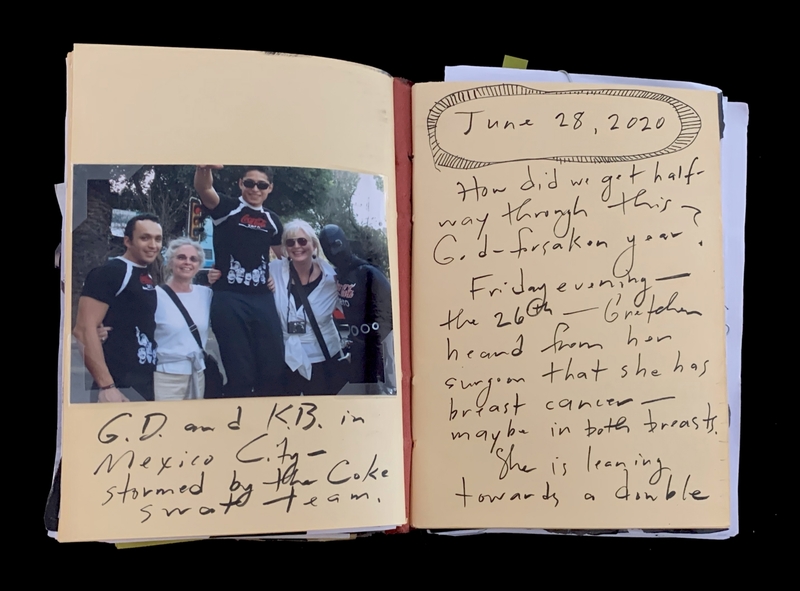 G.D. and K.B. in
Mexico City—
stormed by the Coke
swat team.
June 28, 2020
How did we get half-
way through this
God-forsaken year?
Friday evening—
the 26th — Gretchen
heard from her
surgeon that she has
breast cancer—
maybe in both breasts.
She is leaning
towards a double